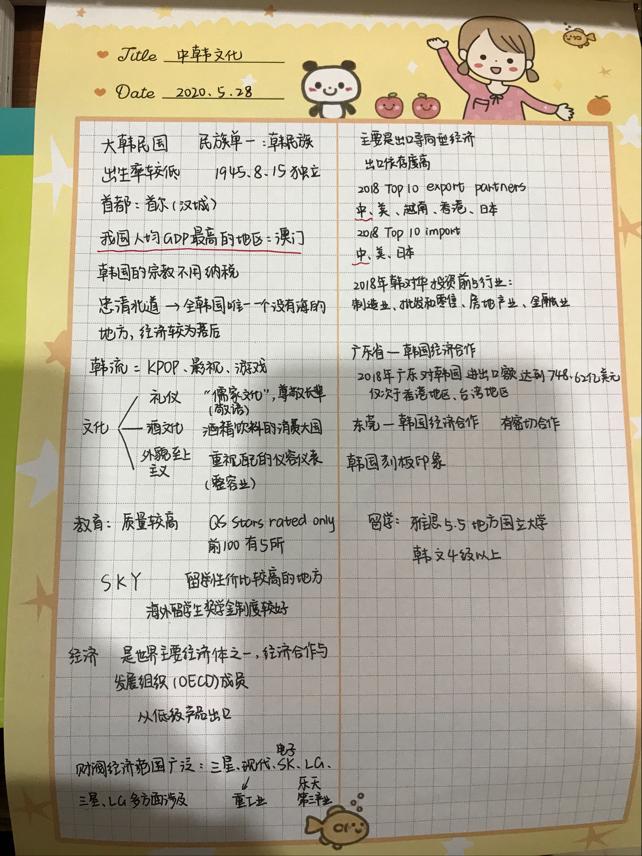 Title 中韩文化
Date 2020.5.28
大韩民国 民族单一:韩民族
出生率较低 1945.8.15独立
首都:首尔(汉城)
我国人均GDP最高的地区:澳门
韩国的宗教不用纳税
忠清北道→全韩国唯一一个没有海的
地方,经济较为落后
韩流=KPOP、影视、游戏
文化
礼仪 "儒家文化",尊敬长辈
(敬语)
酒文化 酒精饮料的消费大国
外貌至上
主义
重视自己的仪容仪表
(整容业)
教育:质量较高 QS stars rated only
前100有5所
SKY 留学性价比较高的地方
海外留学生奖学金制度较好
经济 是世界主要经济体之一,经济合作与
发展组织(OECD)成员
从低级产品出口
财阀经济范围广泛:三星、现代、SK、LG、
电子
乐天
三星、LG多方面涉及 重工业 第三产业
主要是出口导向型经济
出口依存度高
2018 Top 10 export partners
中、美、越南、香港、日本
2018 Top 10 import
中、美、日本
2018年韩对华投资前5行业:
制造业、批发和零售、房地产业、金融业
广东省—韩国经济合作
2018年广东对韩国进出口额达到748.62亿美元
仅次于香港地区、台湾地区
东莞—韩国经济合作 有密切合作
韩国刻板印象
留学:雅思5.5 地方国立大学
韩文4级以上